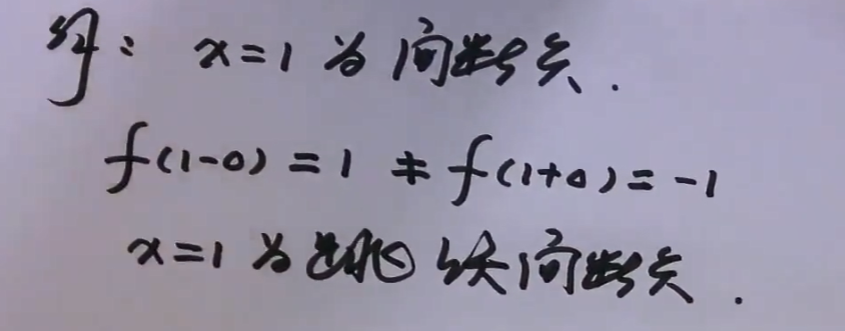 解: x=1 为间断点.
f(1-0)=1≠f(1+0)=-1
x=1 为跳跃间断点.